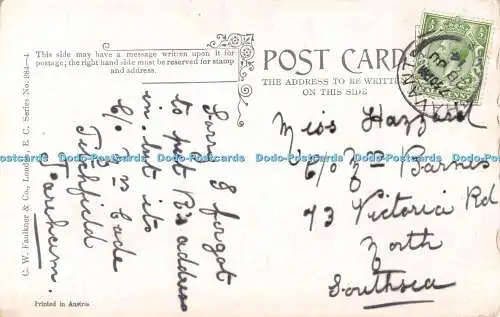 This side may have a message written upon it for
postage; the right hand side must be reserved for stamp
and address.
POST CARD
THE ADDRESS TO BE WRITTEN
ON THIS SIDE
C. W. Faulkner & Co., London, E. C. Series No. 984—4
Sorry I forgot
to put B's address
in. but its
C/o Mrs Cade
Titchfield
Fareham.
Miss Hazzard
C/o Mrs Barnes
73 Victoria Rd
North
Southsea
Printed in Austria
Dodo-Postcards Dodo-Postcards Dodo-Postcards Dodo-Postcards Dodo-Postcards Dodo-Postcards